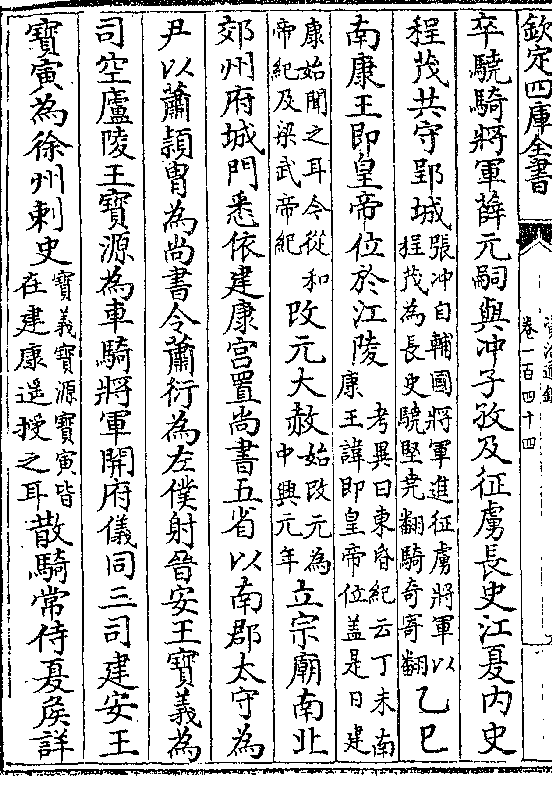 欽定四庫全書
卷一百四十四
卒驍騎將軍薛元嗣與沖子孜及征虜長史江夏内史
程茂共守郢城張沖自輔國將軍進征虜將軍以程茂為長史驍堅堯翻騎奇寄翻乙巳
南康王即皇帝位於江陵考異曰東昏紀云丁未南康王諱即皇帝位盖是日建
康始聞之耳今從和帝紀及梁武帝紀改元大赦始改元為中興元年立宗廟南北
郊州府城門悉依建康宫置尚書五省以南郡太守為
尹以蕭穎胄為尚書令蕭衍為左僕射晉安王寶義為
司空廬陵王寶源為車騎將軍開府儀同三司建安王
寶寅為徐州刺史寶義寶源寶寅皆在建康遥授之耳散騎常侍夏侯詳